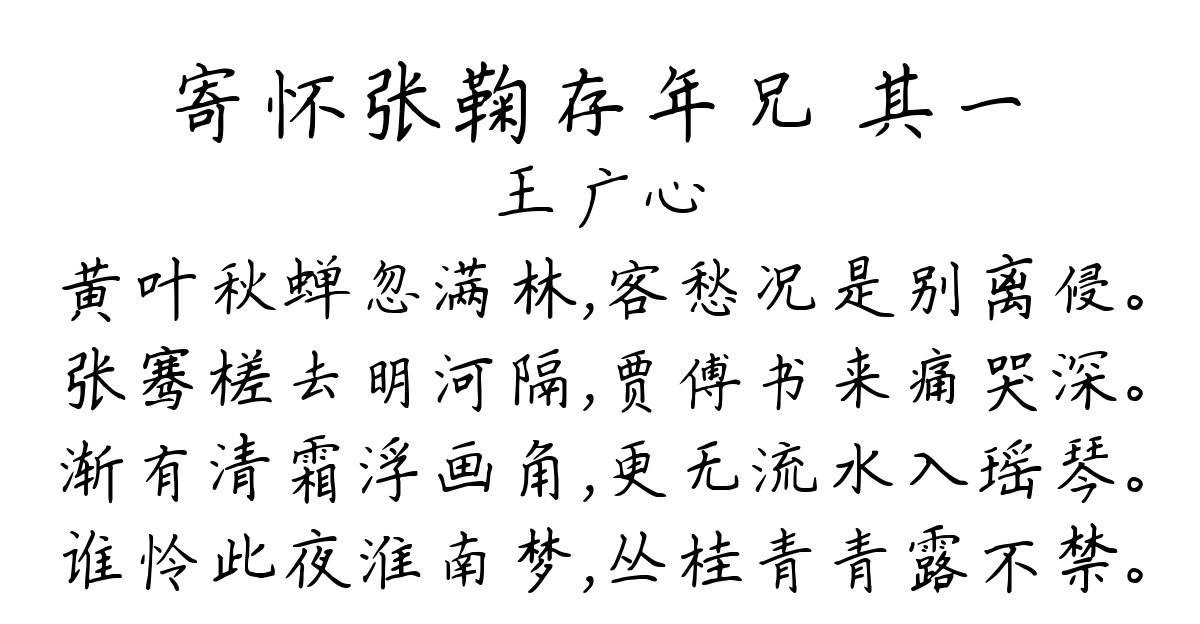 寄怀张鞠存年兄 其一
王广心
黄叶秋蝉忽满林,客愁况是别离侵。
张骞槎去明河隔,贾傅书来痛哭深。
渐有清霜浮画角,更无流水入瑶琴。
谁怜此夜淮南梦,丛桂青青露不禁。